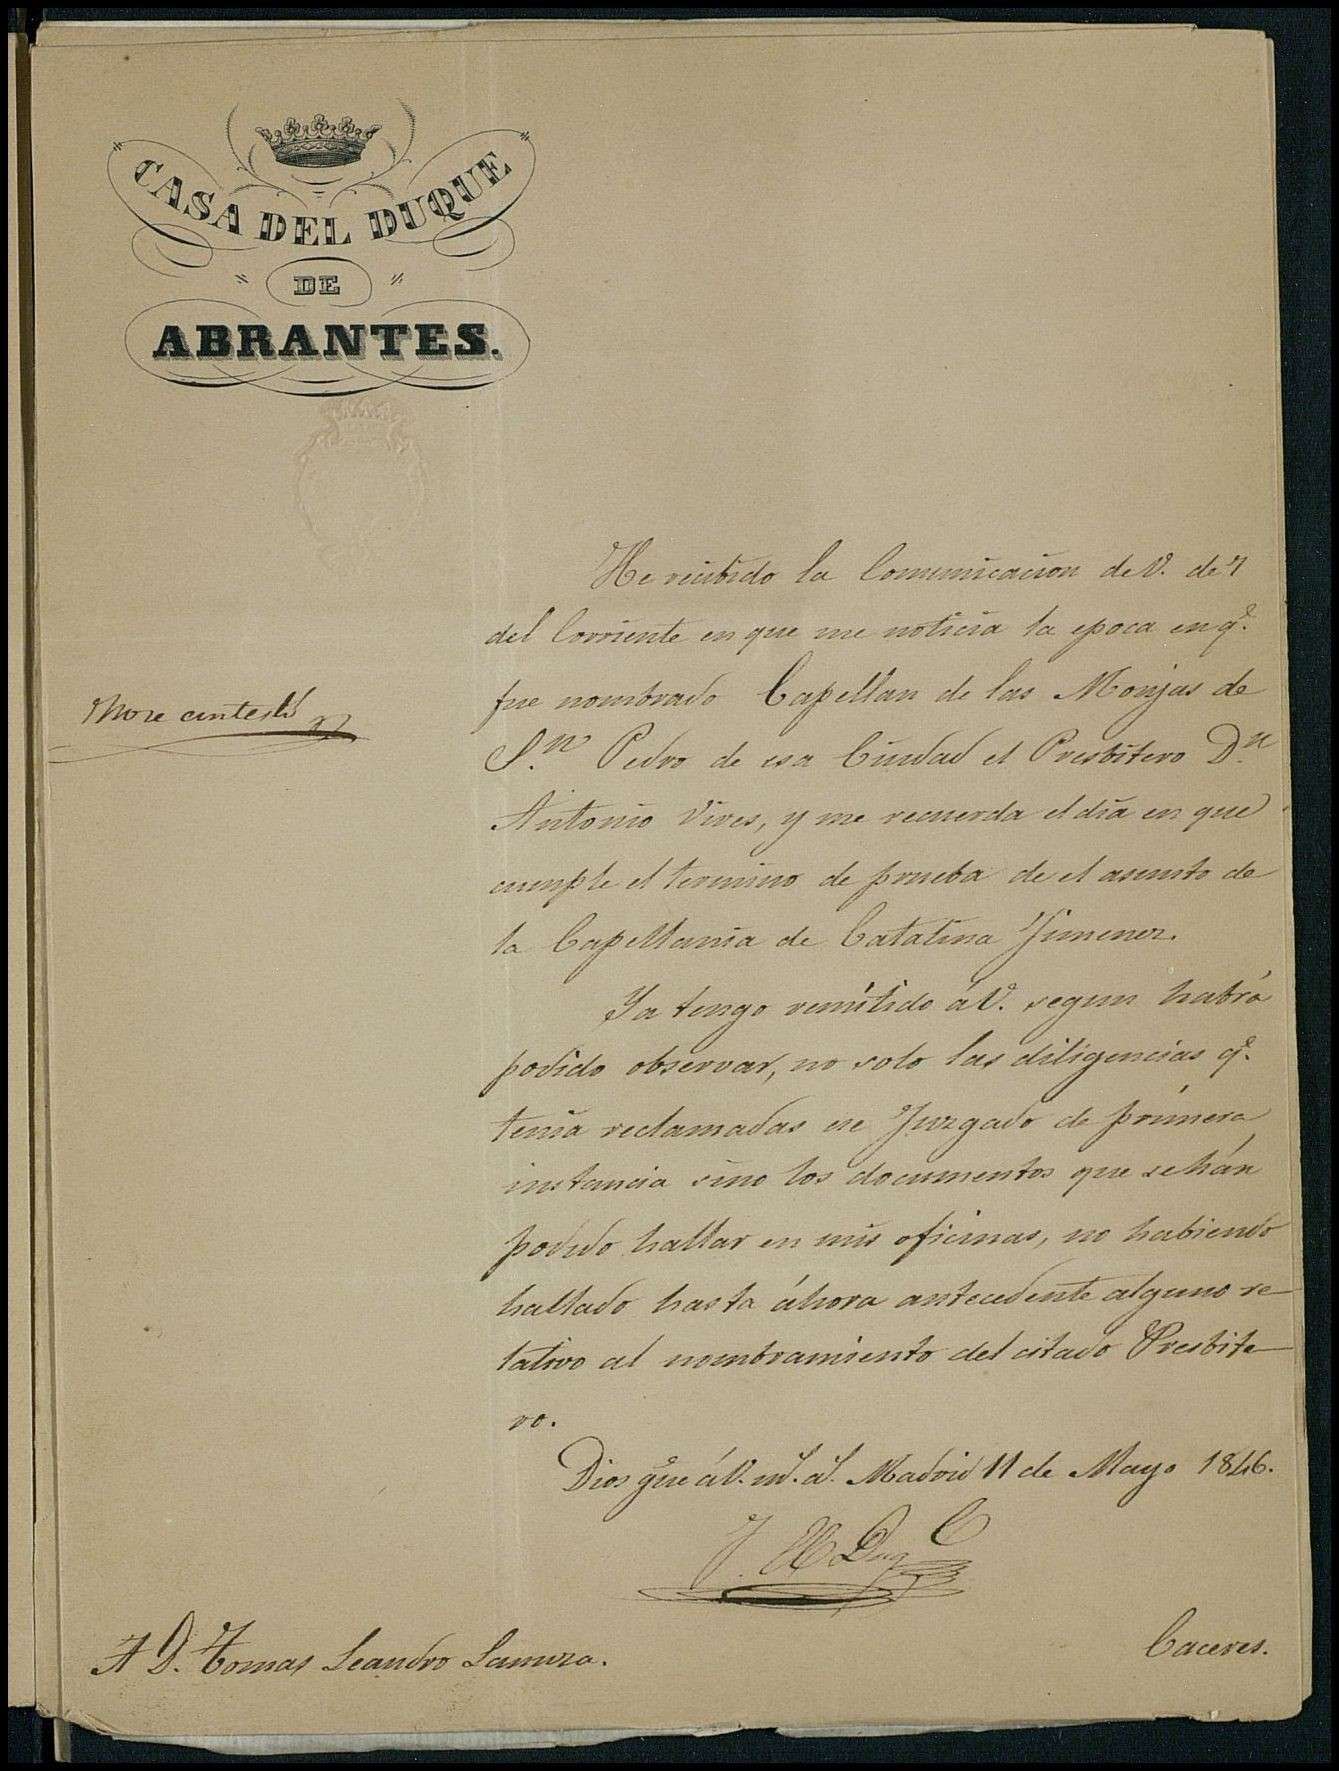 CASA DEL DUQUE
DE
ABRANTES.
He recibido la Comunicacion de V. de 7
del Corriente en que me noticia la epoca en q.e
fue nombrado Capellan de las Monjas de
S.n Pedro de esa Ciudad el Presbitero D.n
Antonio Vives, y me recuerda el dia en que
cumple el termino de prueba de el asunto de
la Capellania de Catalina Jimenez.
Ya tengo remitido á V. segun habrá
podido observar, no solo las diligencias q.e
tenia reclamadas ese Juzgado de primera
instancia sino los documentos que se hán
podido hallar en mis oficinas, no habiendo
hallado hasta áhora antecedente alguno re-
lativo al nombramiento del citado Presbite-
ro.
Dios gue á V. m.s a.s Madrid 11 de Mayo 1846.
A D. Tomas Leandro
Caceres.